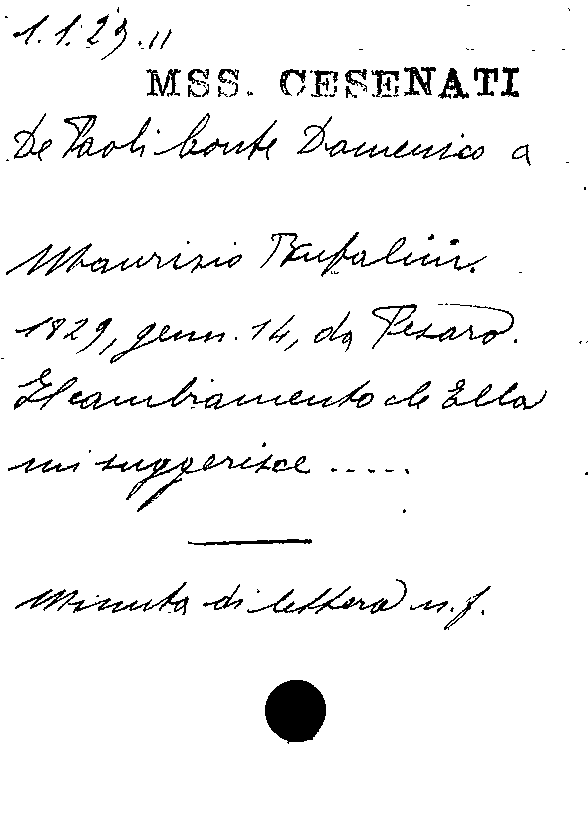 1.1.23.11
MSS. CESENATI
De Paoli Conte Domenico a
Maurizio Bufalini.
1829, genn. 14, da Pesaro.
Il cambiamento che Ella
mi suggerisce .....
Minuta di lettera n. f.